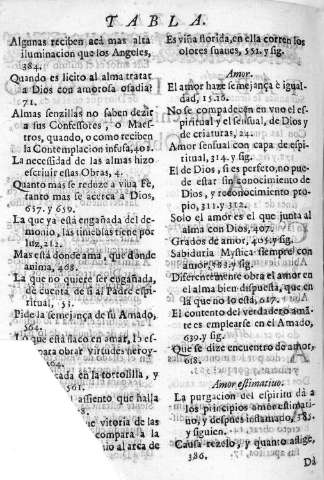 TABLA.
Algunas reciben acá mas alta
iluminacion que los Angeles,
384.
Quando es licito al alma tratar
a Dios con amorosa osadia?
71.
Almas senzillas no saben dezir
a sus Confessores, o Maes-
tros, quando, o como reciben
la Contemplacion infusa, 402.
La necesidad de las almas hizo
escriuir estas Obras, 4.
Quanto mas se reduze a viua Fe,
tanto mas se acerca à Dios,
657. y 659.
La que ya está engañada del de-
monio, las tinieblas tiene por
luz, 212.
Mas está donde ama, que donde
anima, 408.
La que no quiere ser engañada,
dè cuenta, de si a Padre espi-
ritual, 51.
Pide la semejança de su Amado,
364.
que está flaco en amar, lo es-
para obrar virtudes heroy-
en la tortolilla, y
561.
assiento que halla
ue vitoria de las
compara a la
nio al arca de
Es viña florida, en ella corren los
olores suaues, 552. y sig.
Amor.
El amor haze semejança è igual-
dad, 15. 18.
No se compadecen en vno el es-
piritual y el sensual, de Dios y
de criaturas, 24.
Amor sensual con capa de espi-
ritual, 314. y sig.
El de Dios, si es perfeto, no pue-
de estar sin conocimiento de
Dios, y reconocimiento pro-
pio, 311. y 312.
Solo el amor es el que junta al
alma con Dios, 407.
Grados de amor, 405. y sig.
Sabiduria Mystica siempre con
amor, 383. y sig.
Diferentemente obra el amor en
el alma bien dispuesta, que en
la que no lo está, 617.
El contento del verdadero amã-
te es emplearse en el Amado,
639. y sig.
Que se dize encuentro de amor,
618.
Amor estimatiuo.
La purgacion del espiritu dà a
los principios amor estimati-
no, y despues inflamado, 385.
y siguien.
Causa rezelo, y quanto aflige,
386.
Dá